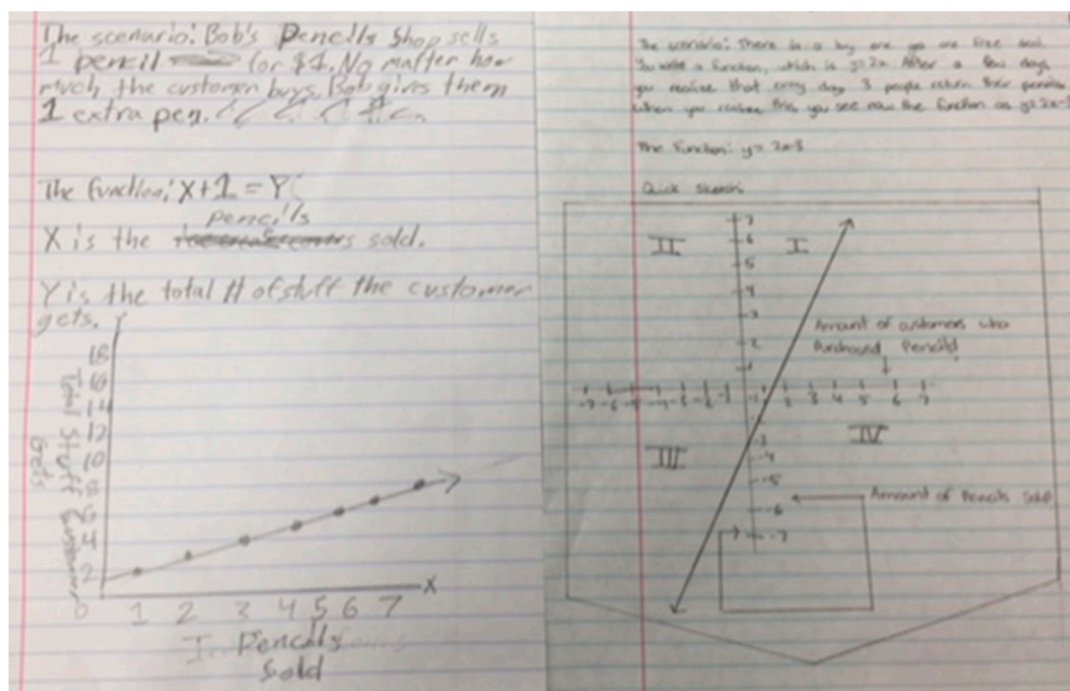 The scenario: Bob's Pencils Shop sells
1 pencil for $1. No matter how
much the customer buys, Bob gives them
1 extra pen.
The function: X+1=Y
pencils
X is the sold.
Y is the total # of stuff the customer
gets.
Y
18
16
14
12
10
8
6
4
2
0
Total Stuff Customer
Gets
1 2 3 4 5 6 7
X
Pencils
Sold
The scenario: There is a buy one get one free deal.
You write a function, which is y=2x. After a few days
you realize that every day 3 people return their pencils
When you realize this, you see now the function as y=2x-3
The function: y=2x-3
Quick Sketch:
7
6
5
4
3
2
1
II
I
Amount of customers who
Purchased Pencils
-7 -6 -5 -4 -3 -2 -1
1 2 3 4 5 6 7
III
IV
-3
-4
-5
-6
-7
Amount of Pencils Sold